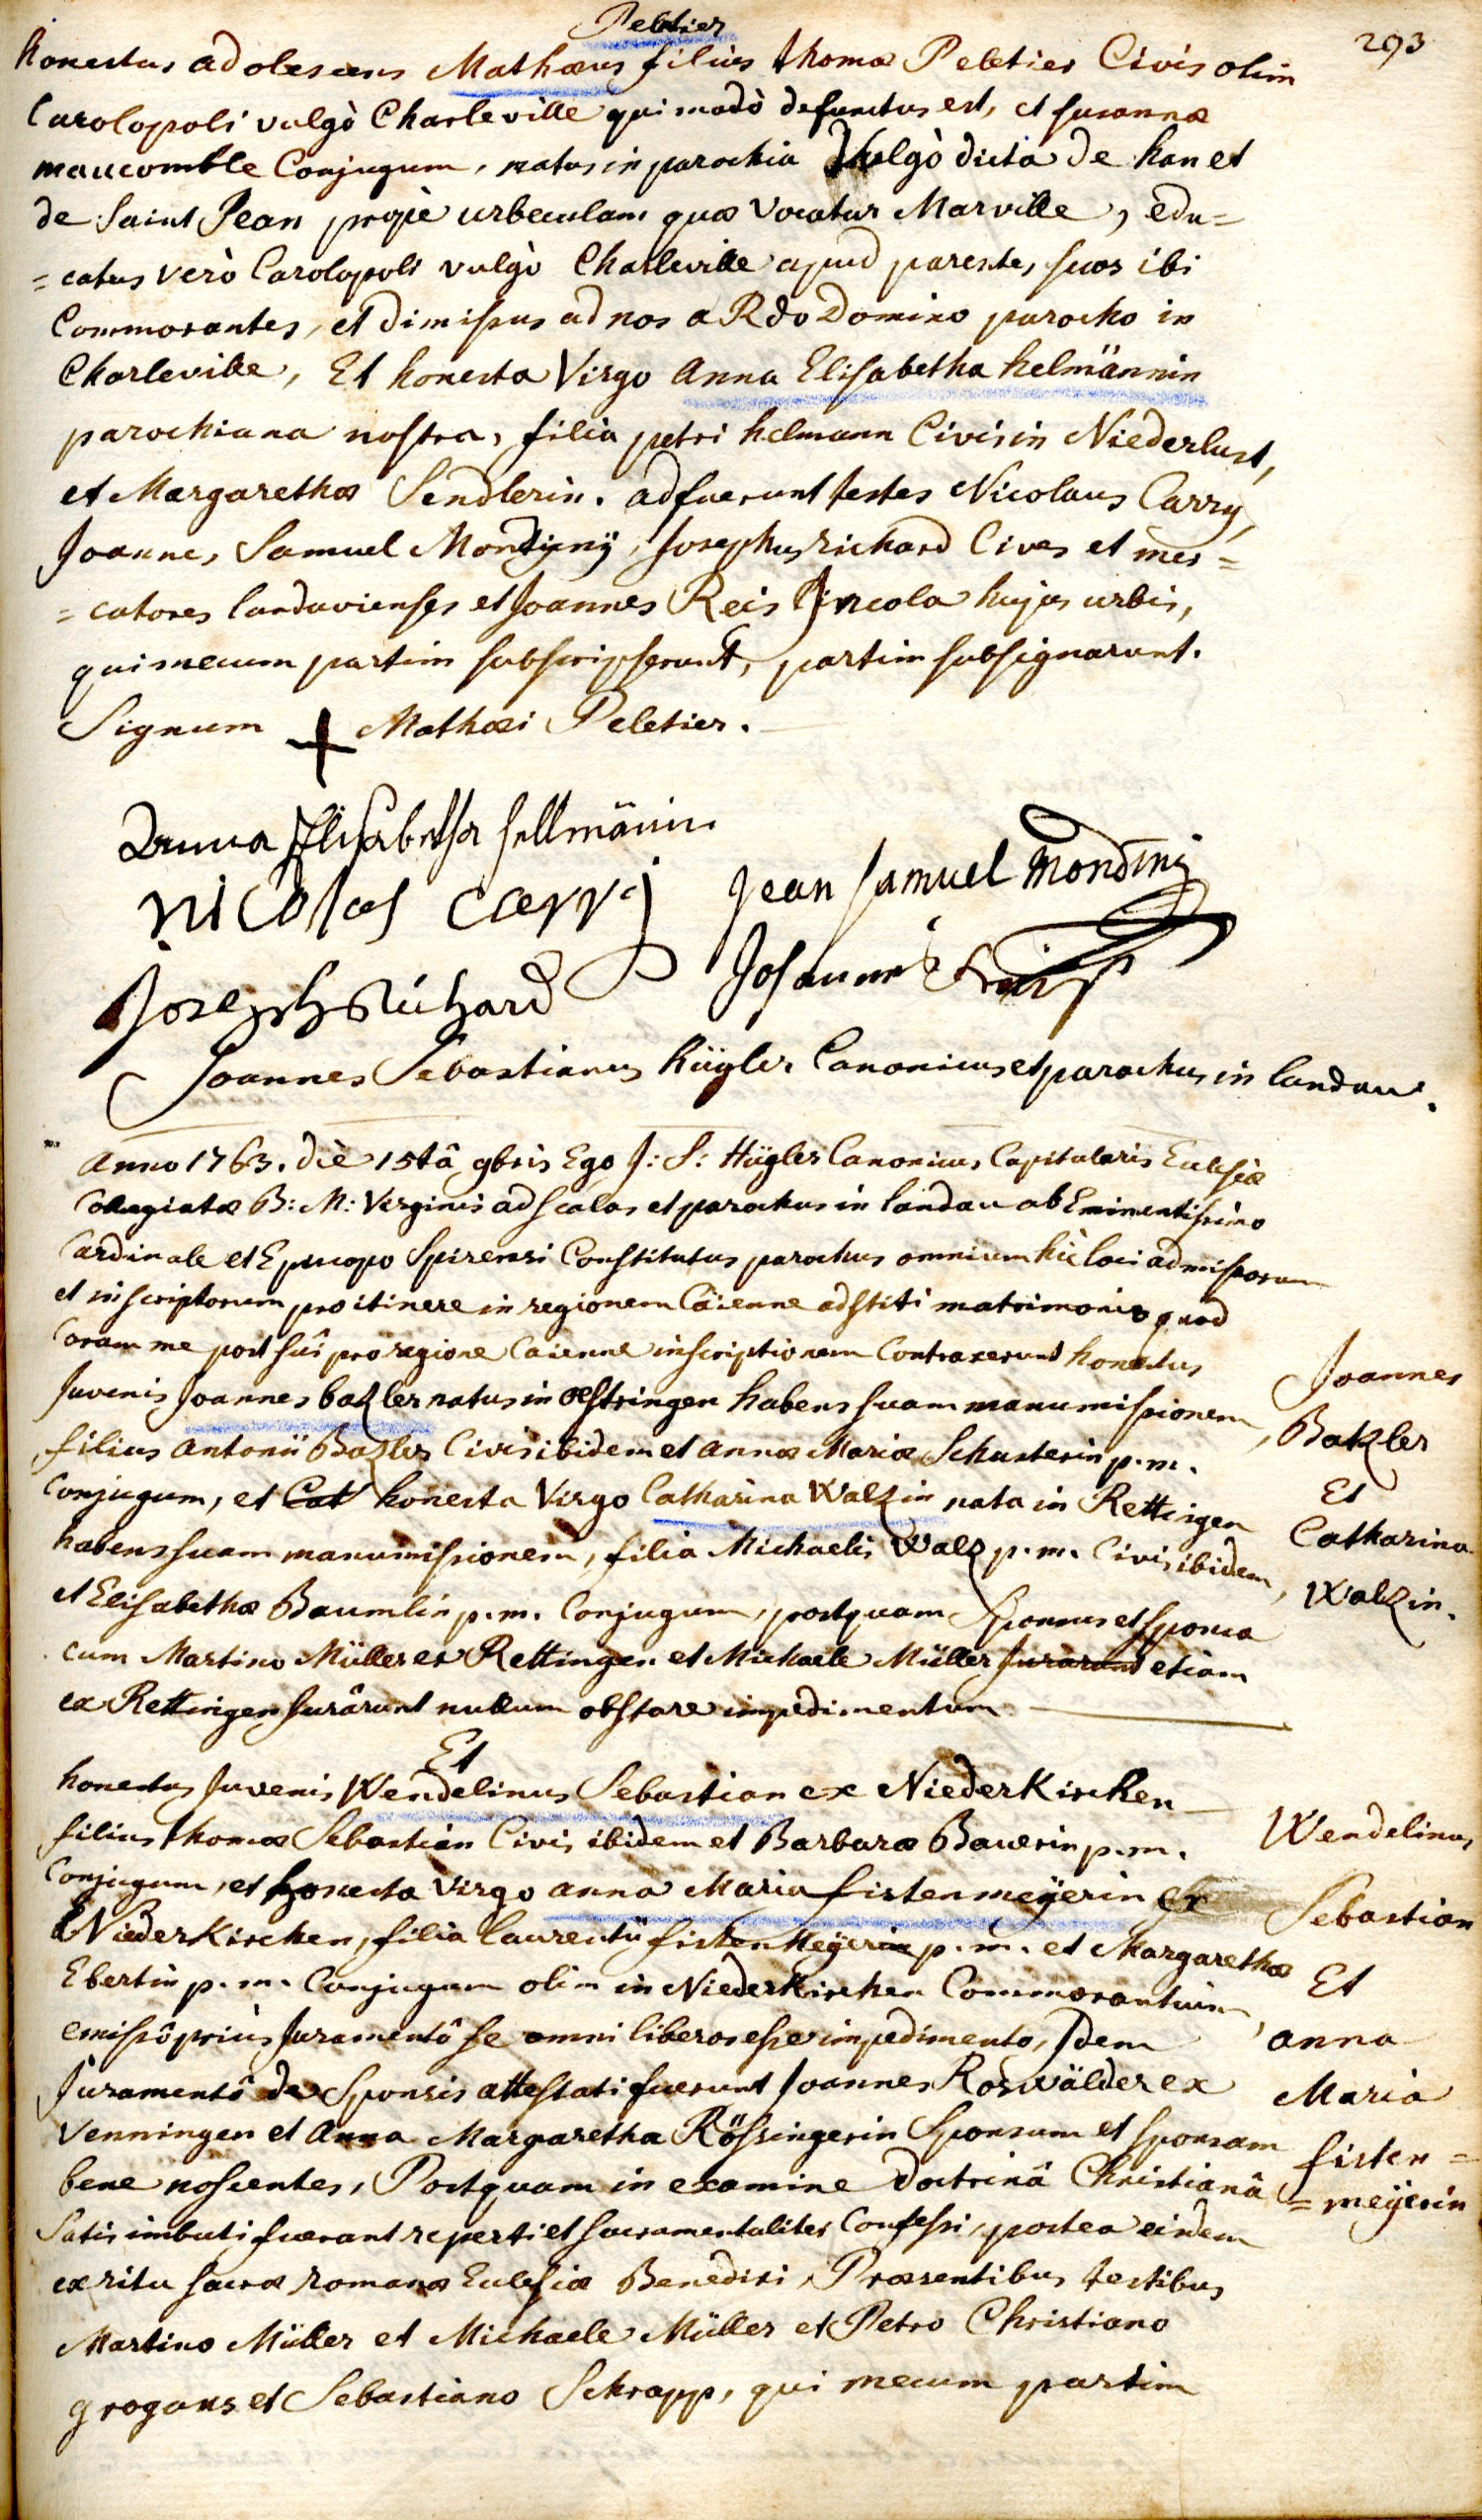 293
Peletier
honestus adolescens Mathæus filius thomæ Peletier Civis olim
Carolopoli vulgò Charleville qui modò defunctus est, et susannæ
maucomble Conjugum, natus in parochia vulgò dicta de han et
de Saint Jean propè urbeculam quæ vocatur Marville, edu=
=catus verò Carolopoli vulgò Charleville apud parentes suos ibi
Commorantes, et dimissus ad nos a Rdo Domino parocho in
Charleville, Et honesta Virgo Anna Elisabetha helmännin
parochiana nostra, filia petri helmann Civis in Niederlust,
et Margarethæ Sendlerin. adfuerunt testes Nicolaus Carry,
Joannes Samuel Mondigny, Josephus richard Cives et mer=
=catores landavienses et Joannes Reis Incola hujus urbis,
qui mecum partim subscripserunt, partim subsignarunt.
Signum + Mathæi Peletier.
Anna Elisabetha hellmänin
nicolas carrj
jean samuel mondinj
Joseph Richard
Johannes Reiss
Joannes Sebastianus hügler Canonicus et parochus in landau.
Anno 1763. die 15tâ 9bris Ego J: S: Hügler Canonicus Capitularis Eulesiæ
Collegiatæ B: M: Virginis ad scalas et parochus in landau ab Eminentissimo
Cardinale et Episcopo Spirensi Constitutus parochus omnium hic loci admissorum
et inscriptorum pro itinere in regionem Caienne adstiti matrimonio quod
Coram me post sui pro regione Caienne inscriptionem Contraxerunt honestus
Juvenis Joannes batzler natus in Œstringen habens suam manumissionem,
filius Antonii Bazler Civis ibidem et Annæ Mariæ Schusterin p.m.
Conjugum, et Cat honesta Virgo Catharina Walzin nata in Rettigen
habens suam manumissionem, filia Michaelis Walz p.m. Civis ibidem,
et Elisabethæ Baumlin p.m. Conjugum, postquam Sponsus et Sponsa
cum Martino Müller ex Rettingen et Michaele Müller Jurarunt etiam
ex Rettingen Jurârunt nullum obstare impedimentum
Joannes
Batzler
Et
Catharina
Walzin.
Et
honestus Juvenis Wendelinus Sebastian ex NiederKirchen
filius thomæ Sebastian Civis ibidem et Barbaræ Bauerin p.m.
Conjugum, et honesta Virgo anna Maria fistenmeÿerin ex
NiederKirchen, filia laurentii fistenMeÿerin p.m. et Margarethæ
Ebertin p.m. Conjugum olim in NiederKirchen Commorantium,
emissô priùs Juramentô se omni liberos esse impedimento, Idem
Juramentô de Sponsis attestati fuerunt Joannes Roswälder ex
Venningen et Anna Margaretha Rössingerin Sponsum et sponsam
bene noscentes, Postquam in examine doctrinâ Christianâ
Satis imbuti fuerant reperti et sacramentaliter Confessi, postea eisdem
ex ritu sacræ romanæ Eulesiæ Benedixi, Præsentibus testibus
Martino Müller et Michaele Müller et Petro Christiano
grogans et Sebastiano Schrapp, qui mecum partim
Wendelinus
Sebastian
Et
anna
Maria
fisten=
=meÿerin